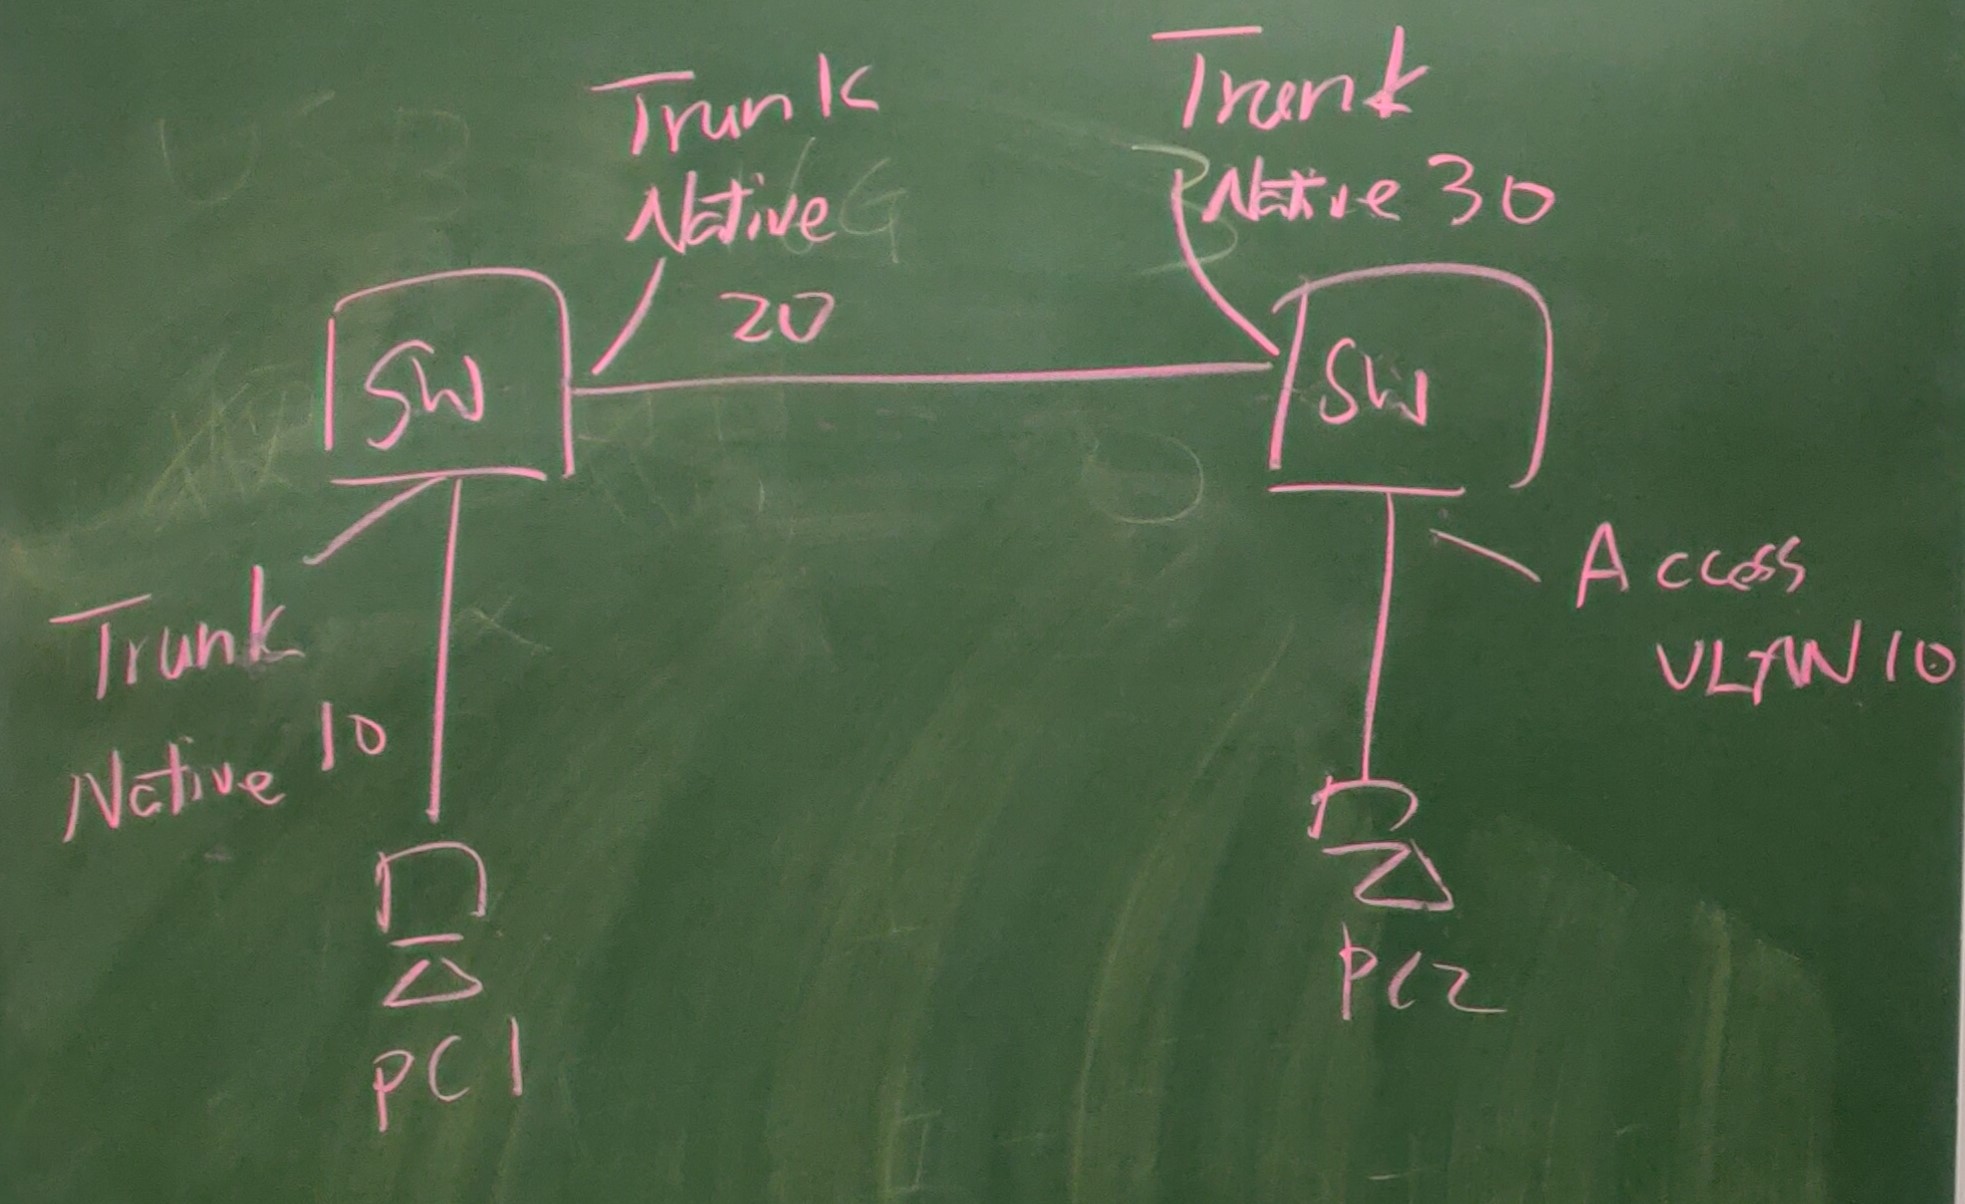 Trunk
Native
20
Trunk
Native 30
SW
SW
Trunk
Native 10
Access
VLAN 10
PC1
PC2